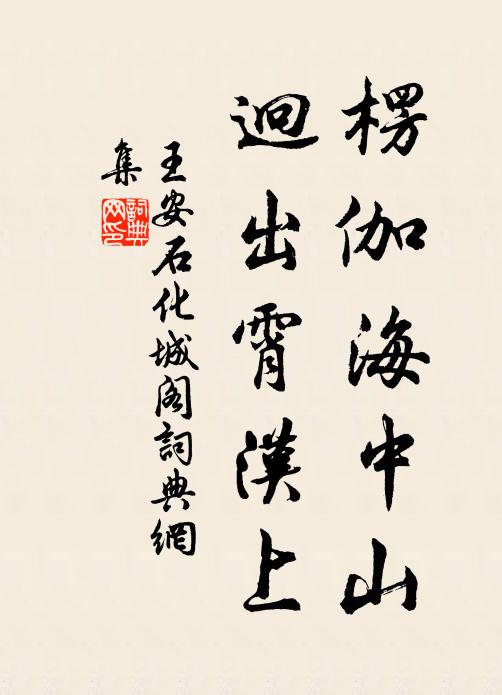 楞伽海中山
迥出霄漢上
王安石化城阁詞典網
集
詞典
网印